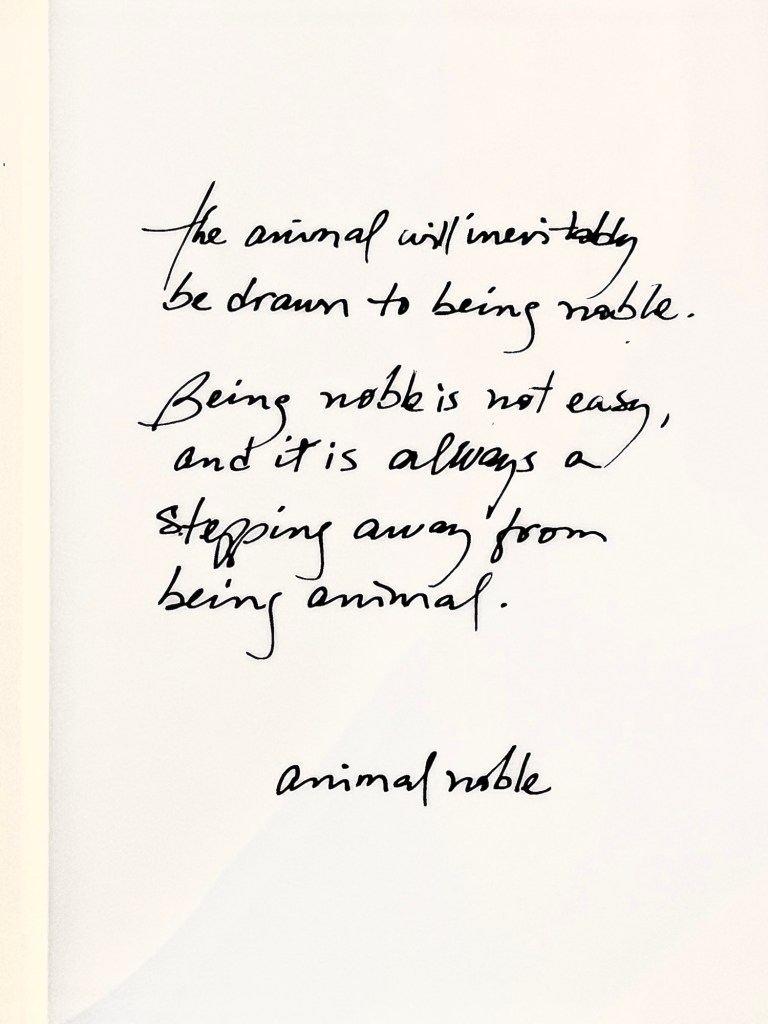 the animal will inevitably
be drawn to being noble.
Being noble is not easy,
and it is always a
stepping away from
being animal.
animal noble